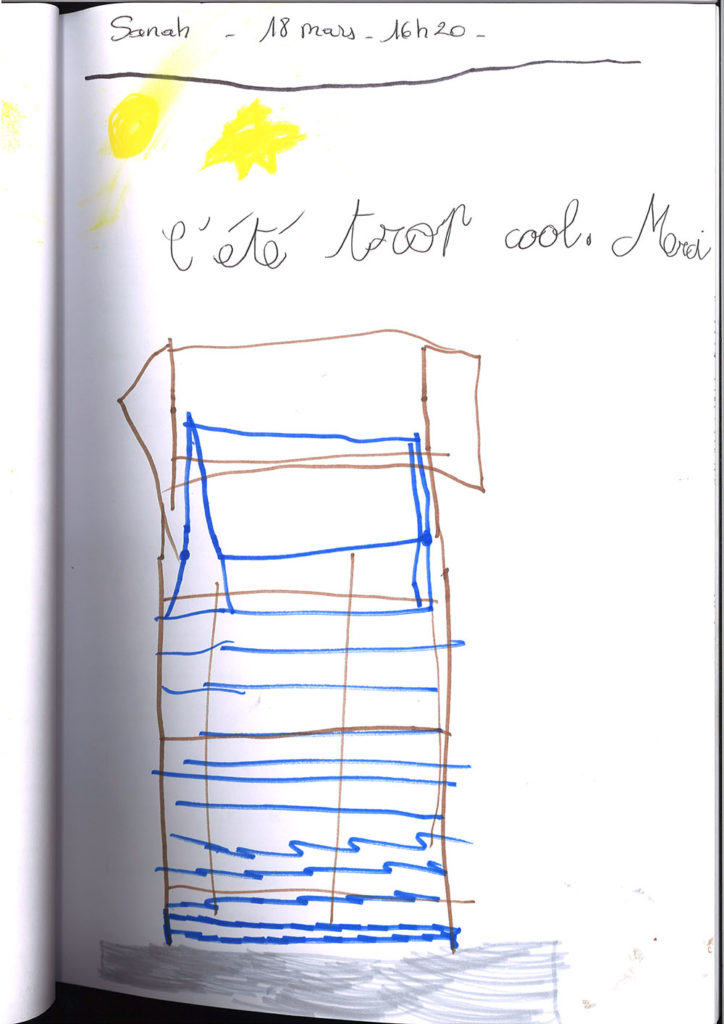 Sanah - 18 mars - 16h20 -
c'été trop cool. Merci